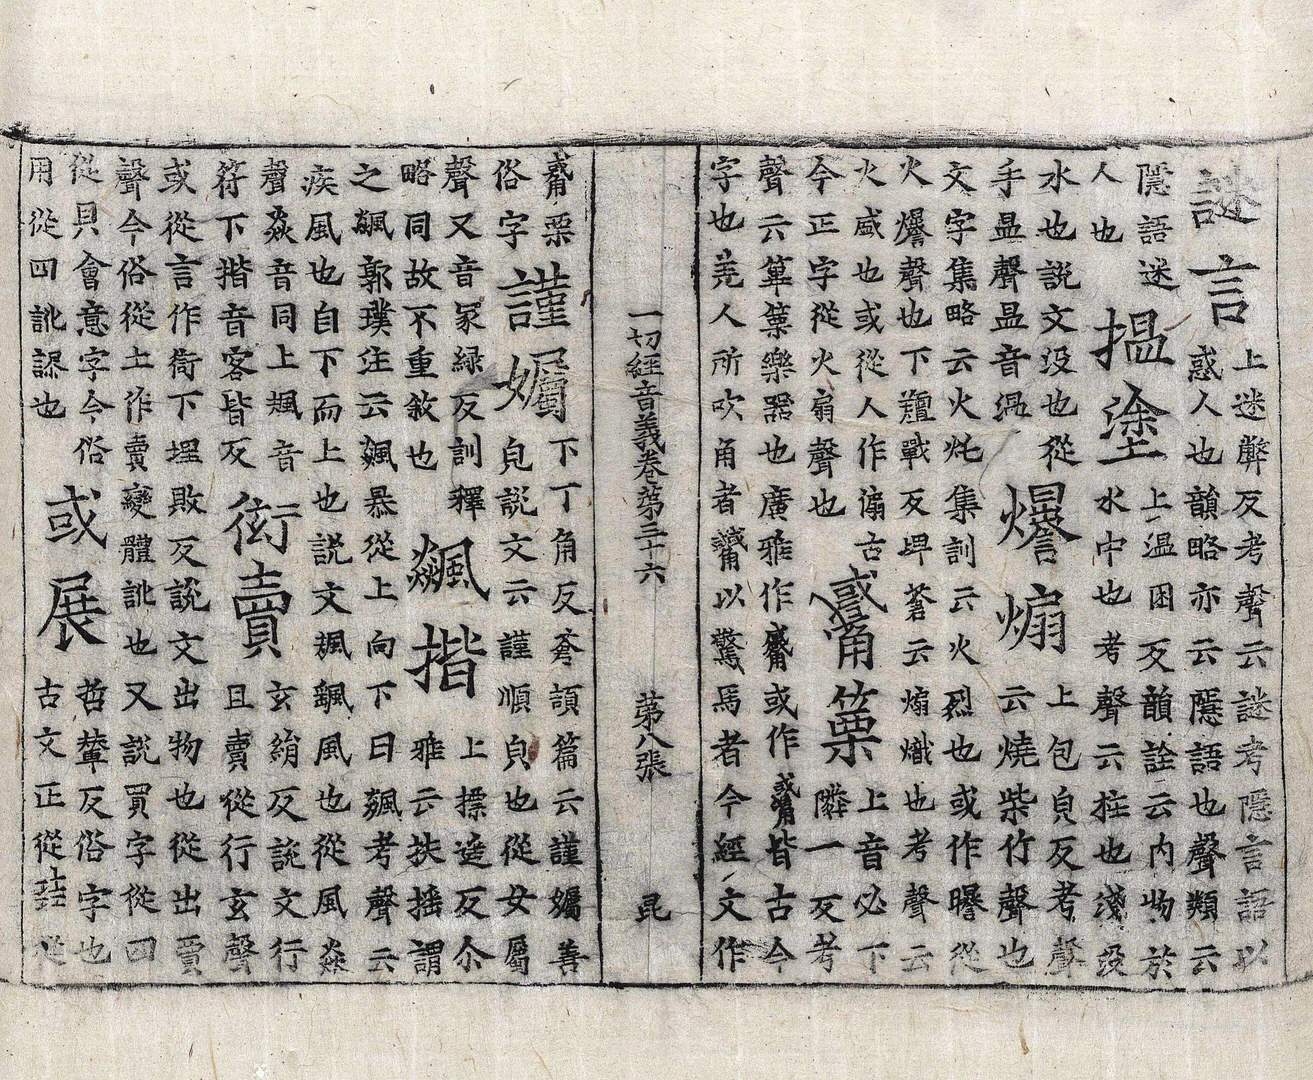 謎言
上迷弊反考聲云謎考隱言語以
惑人也韻略亦云隱語也聲類云
隱語迷
人也
搵塗
上溫困反韻詮云内物於
水中也考聲云拄也淺沒
水也説文没也從
手昷聲昷音溫
爆煽
上包皃反考聲
云燒柴竹聲也
文字集略云火灹集訓云火烈也或作㬥從
火爆聲也下羶戰反埤蒼云煽熾也考聲云
火盛也或從人作傓古
今正字從火扇聲也
觱篥
上音必下
隣一反考
聲云篳篥樂器也廣雅作觱或作觱皆古今
字也羌人所吹角者觱以驚馬者今經文作
一切經音義卷第三十六 第八張 昆
觱栗
俗字
謹孎
下丁角反蒼頡篇云謹孎善
皃説文云謹順皃也從女屬
聲又音冢緑反訓釋
略同故不重敘也
飇揩
上摽遙反尒
雅云扶摇謂
之飇郭璞注云飇暴從上向下曰飇考聲云
疾風也自下而上也説文颯飇風也從風猋
聲猋音同上颯音
符下揩音客皆反
衒賣
玄絹反説文行
且賣從行玄聲
或從言作衒下埋敗反説文出物也從出買
聲今俗從土作賣變體訛也又説買字從四
從貝會意字今俗
用從四訛謬也
或展
哲輦反俗字也
古文正從㠭從